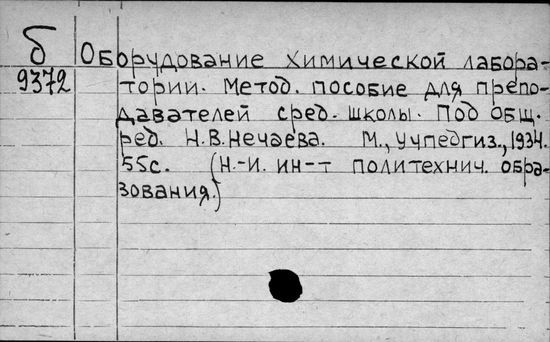 б Оборудование химической лабора-
9372 тории. Метод. пособие для препо-
давателей сред. школы. Под общ.
ред. Н.В.Нечаева. М., Учпедгиз., 1934.
55с. (Н.-И. ин-т политехнич. обра-
зования.)